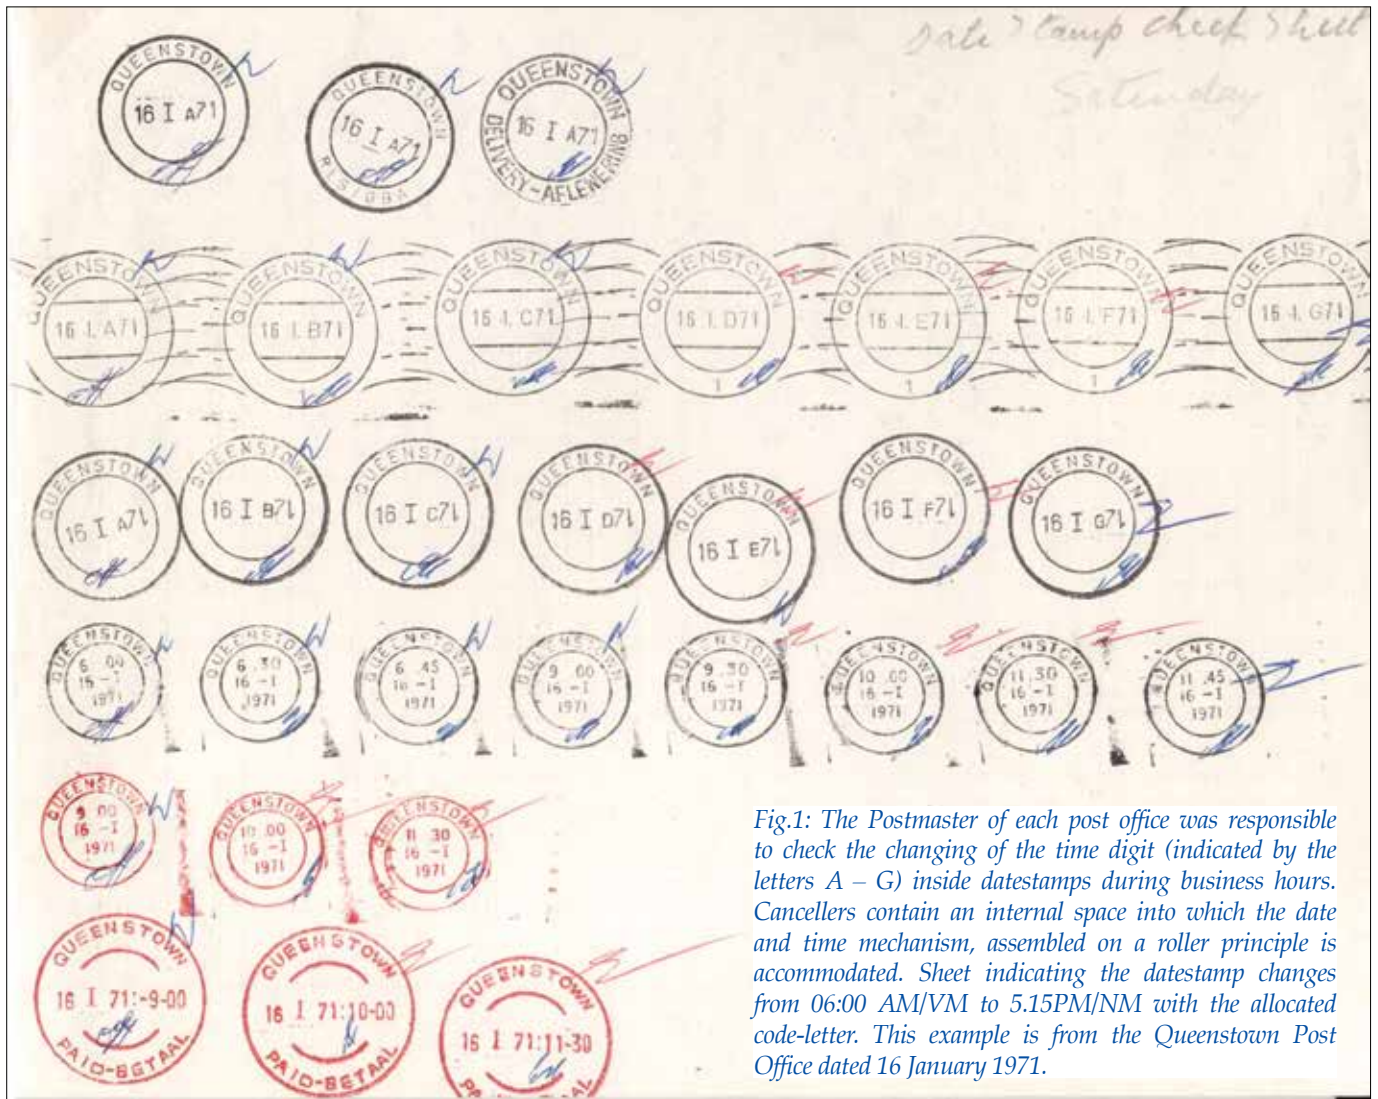 Date Stamp Check Sheet
Saturday
QUEENSTOWN
16 I A71
QUEENSTOWN
16 I A71
QUEENSTOWN 8
16 I A71
DELIVERY-AFLEWERING
QUEENSTOWN
16 I. A71
QUEENSTOWN
16 I. B71
QUEENSTOWN
16 I. C71
QUEENSTOWN
16 I. D71
1
QUEENSTOWN
16 I. E71
1
QUEENSTOWN
16 I. F71
1
QUEENSTOWN
16 I. G71
QUEENSTOWN
16 I A71
QUEENSTOWN
16 I B71
QUEENSTOWN
16 I C71
QUEENSTOWN
16 I D71
QUEENSTOWN
16 I E71
QUEENSTOWN
16 I F71
QUEENSTOWN
16 I G71
QUEENSTOWN
6 00
16 -I
1971
QUEENSTOWN
6.30
16 -I
1971
QUEENSTOWN
6.45
16 -I
1971
QUEENSTOWN
9 00
16 -I
1971
QUEENSTOWN
9.30
16 -I
1971
QUEENSTOWN
10.00
16 -I
1971
QUEENSTOWN
11.30
16 -I
1971
QUEENSTOWN
11.45
16 -I
1971
QUEENSTOWN
9 00
16 -I
1971
QUEENSTOWN
10 00
16 -I
1971
QUEENSTOWN
11 30
16 -I
1971
QUEENSTOWN
16 I 71:-9-00
PAID-BETAAL
QUEENSTOWN
16 I 71:10-00
PAID-BETAAL
QUEENSTOWN
16 I 71:11-30
PAID-BETAAL
Fig.1: The Postmaster of each post office was responsible
to check the changing of the time digit (indicated by the
letters A – G) inside datestamps during business hours.
Cancellers contain an internal space into which the date
and time mechanism, assembled on a roller principle is
accommodated. Sheet indicating the datestamp changes
from 06:00 AM/VM to 5.15PM/NM with the allocated
code-letter. This example is from the Queenstown Post
Office dated 16 January 1971.